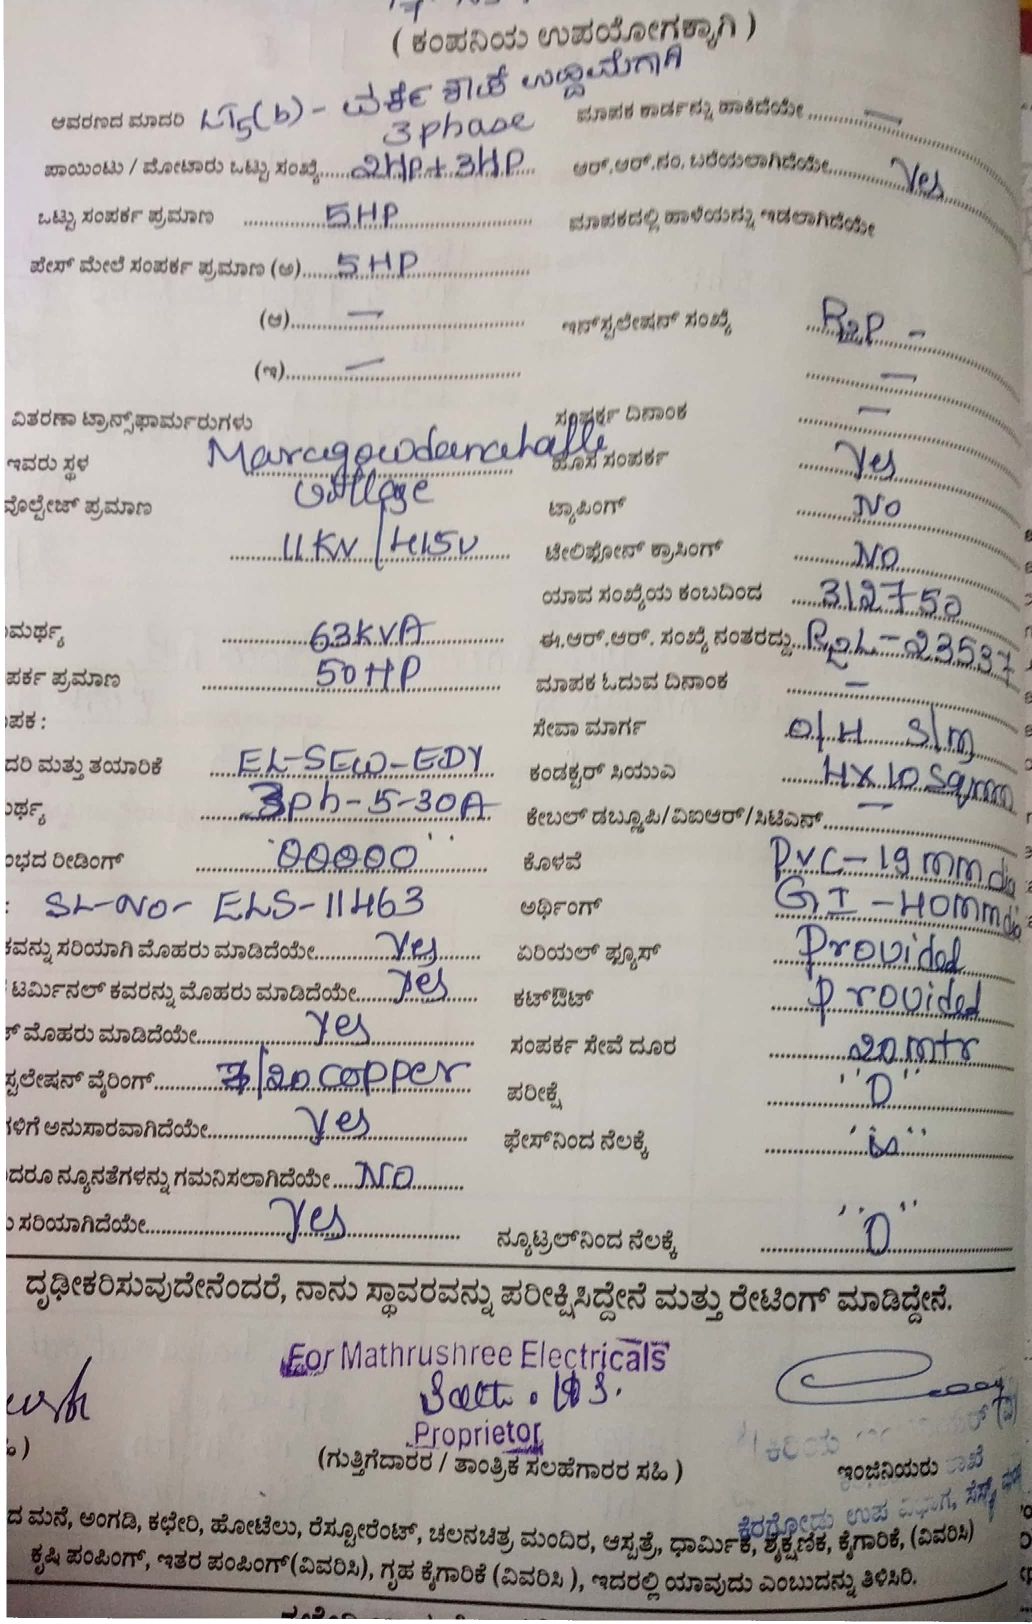 ( ಕಂಪನಿಯ ಉಪಯೋಗಕ್ಕಾಗಿ )
ಆವರಣದ ಮಾದರಿ LT5(b) - ವರ್ಕ್ ಶಾಪ್ ಉದ್ದಿಮೆಗಾಗಿ ಮಾಪಕ ಕಾರ್ಡನ್ನು ಹಾಕಿದೆಯೇ ........ —
3 phase
ಪಾಯಿಂಟು / ಮೋಟಾರು ಒಟ್ಟು ಸಂಖ್ಯೆ...... 2HP + 3HP ಆರ್.ಆರ್.ನಂ. ಬರೆಯಲಾಗಿದೆಯೇ........ Yes
ಒಟ್ಟು ಸಂಪರ್ಕ ಪ್ರಮಾಣ ........ 5HP ಮಾಪಕದಲ್ಲಿ ಹಾಳೆಯನ್ನು ಇಡಲಾಗಿದೆಯೇ
ಪೇಸ್ ಮೇಲೆ ಸಂಪರ್ಕ ಪ್ರಮಾಣ (ಅ)...... 5 HP
(ಆ)...... — ಇನ್‌ಸ್ಟಲೇಷನ್ ಸಂಖ್ಯೆ ...... R2P -
(ಇ)...... — ...... —
ವಿತರಣಾ ಟ್ರಾನ್ಸ್‌ಫಾರ್ಮರುಗಳು ಸಂಪರ್ಕ ದಿನಾಂಕ ...... —
ಇವರು ಸ್ಥಳ Maragowdanahalli ಹೊಸ ಸಂಪರ್ಕ ...... Yes
village
ವೊಲ್ಟೇಜ್ ಪ್ರಮಾಣ ಟ್ಯಾಪಿಂಗ್ ...... NO
11KV/415V ಟೇಲಿಫೋನ್ ಕ್ರಾಸಿಂಗ್ ...... NO
ಯಾವ ಸಂಖ್ಯೆಯ ಕಂಬದಿಂದ ...... 312750
ಮರ್ಥ್ಯ ...... 63KVA ಈ.ಆರ್.ಆರ್. ಸಂಖ್ಯೆ ನಂತರದ್ದು... R2L-23537
ಪರ್ಕ ಪ್ರಮಾಣ ...... 50HP ಮಾಪಕ ಓದುವ ದಿನಾಂಕ ...... —
ಪಕ : ಸೇವಾ ಮಾರ್ಗ ...... O/H S/M
ದರಿ ಮತ್ತು ತಯಾರಿಕೆ ...... EL-SEW-EDY ಕಂಡಕ್ಟರ್ ಸಿಯುಎ ...... 4X10 Sqmm
ರ್ಥ್ಯ ...... 3ph-5-30A ಕೇಬಲ್ ಡಬ್ಲೂಪಿ/ವಿಐಆರ್/ಸಿಟಿಎಸ್...... —
ಂಭದ ರೀಡಿಂಗ್ ...... "00000" ಕೊಳವೆ ...... PVC-19mm dia
: SL-NO- ELS-11463 ಅರ್ಥಿಂಗ್ ...... GI-40mm dia
ಕವನ್ನು ಸರಿಯಾಗಿ ಮೊಹರು ಮಾಡಿದೆಯೇ...... Yes ಏರಿಯಲ್ ಫ್ಯೂಸ್ ...... Provided
ಟರ್ಮಿನಲ್ ಕವರನ್ನು ಮೊಹರು ಮಾಡಿದೆಯೇ...... Yes ಕಟ್‌ಔಟ್ ...... Provided
ಮೊಹರು ಮಾಡಿದೆಯೇ...... Yes ಸಂಪರ್ಕ ಸೇವೆ ದೂರ ...... 20 mtr
ಸ್ಟಲೇಷನ್ ವೈರಿಂಗ್...... 7/20 copper ಪರೀಕ್ಷೆ ...... "0"
ಗಳಿಗೆ ಅನುಸಾರವಾಗಿದೆಯೇ...... Yes ಫೇಸ್‌ನಿಂದ ನೆಲಕ್ಕೆ ......
ದರೂ ನ್ಯೂನತೆಗಳನ್ನು ಗಮನಿಸಲಾಗಿದೆಯೇ.... NO
ಸರಿಯಾಗಿದೆಯೇ...... Yes ನ್ಯೂಟ್ರಲ್‌ನಿಂದ ನೆಲಕ್ಕೆ ...... "0"
ದೃಢೀಕರಿಸುವುದೇನೆಂದರೆ, ನಾನು ಸ್ಥಾವರವನ್ನು ಪರೀಕ್ಷಿಸಿದ್ದೇನೆ ಮತ್ತು ರೇಟಿಂಗ್ ಮಾಡಿದ್ದೇನೆ.
For Mathrushree Electricals
Proprietor
(ಗುತ್ತಿಗೆದಾರರ / ತಾಂತ್ರಿಕ ಸಲಹೆಗಾರರ ಸಹಿ ) ಇಂಜಿನಿಯರು
ಕೆರಗೋಡು ಉಪ ವಿಭಾಗ,
ದ ಮನೆ, ಅಂಗಡಿ, ಕಛೇರಿ, ಹೋಟೆಲು, ರೆಸ್ಟೋರೆಂಟ್, ಚಲನಚಿತ್ರ ಮಂದಿರ, ಆಸ್ಪತ್ರೆ, ಧಾರ್ಮಿಕ, ಶೈಕ್ಷಣಿಕ, ಕೈಗಾರಿಕೆ, (ವಿವರಿಸಿ)
ಕೃಷಿ ಪಂಪಿಂಗ್, ಇತರ ಪಂಪಿಂಗ್(ವಿವರಿಸಿ), ಗೃಹ ಕೈಗಾರಿಕೆ (ವಿವರಿಸಿ ), ಇದರಲ್ಲಿ ಯಾವುದು ಎಂಬುದನ್ನು ತಿಳಿಸಿರಿ.